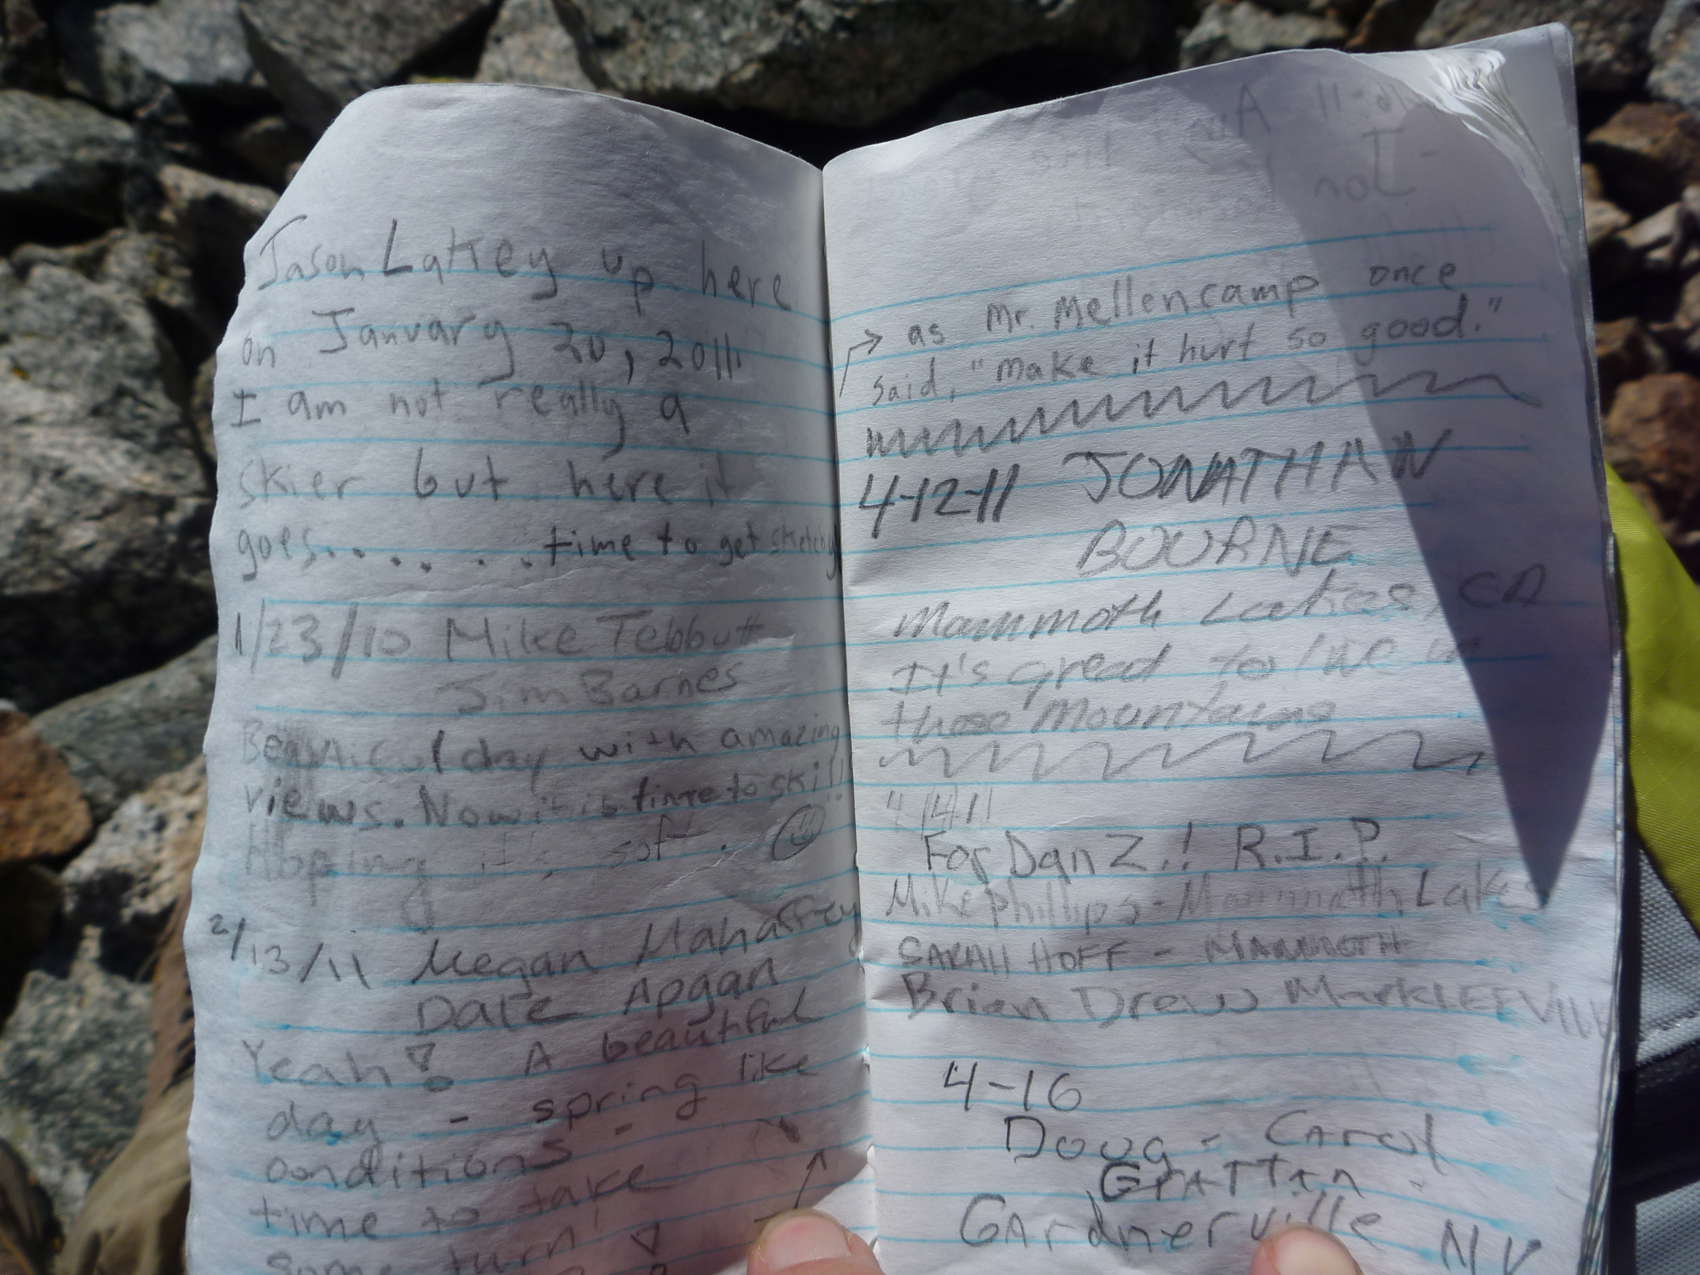 Jason Lakey up here
on January 20, 2011.
I am not really a
skier but here it
goes.. . . . . . time to get sketchy
1/23/10 Mike Tebbutt
Jim Barnes
Beautiful day with amazing
views. Now it is time to ski!
Hoping it's soft.
2/13/11 Megan Mahaffey
Dale Apgan
Yeah! A beautiful
day - spring like
conditions -
time to take
some turn
→ as Mr. Mellencamp once
said, "Make it hurt so good."
4-12-11 JONATHAN
BOURNE
Mammoth Lakes, CA
It's great to live in
these Mountains
4/14/11
For Dan Z.! R.I.P.
Mike Phillips - Mammoth Lakes
SARAH HOFF - MAMMOTH
Brian Drew MarkLEEVILLE
4-16
Doug - Carol
GrATTAn
GArdnerville NV